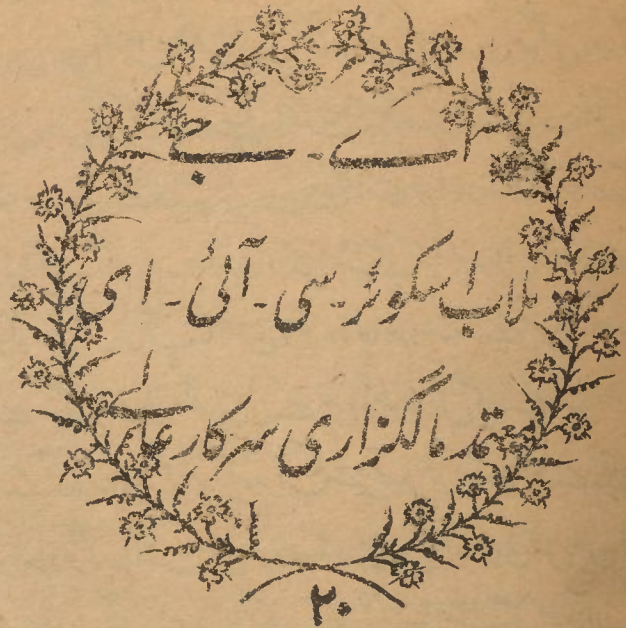 اے - جے
نلاب اسکوئر - سی - آئی - ای
معتمد مالگزاری سرکار عالی
۲۰